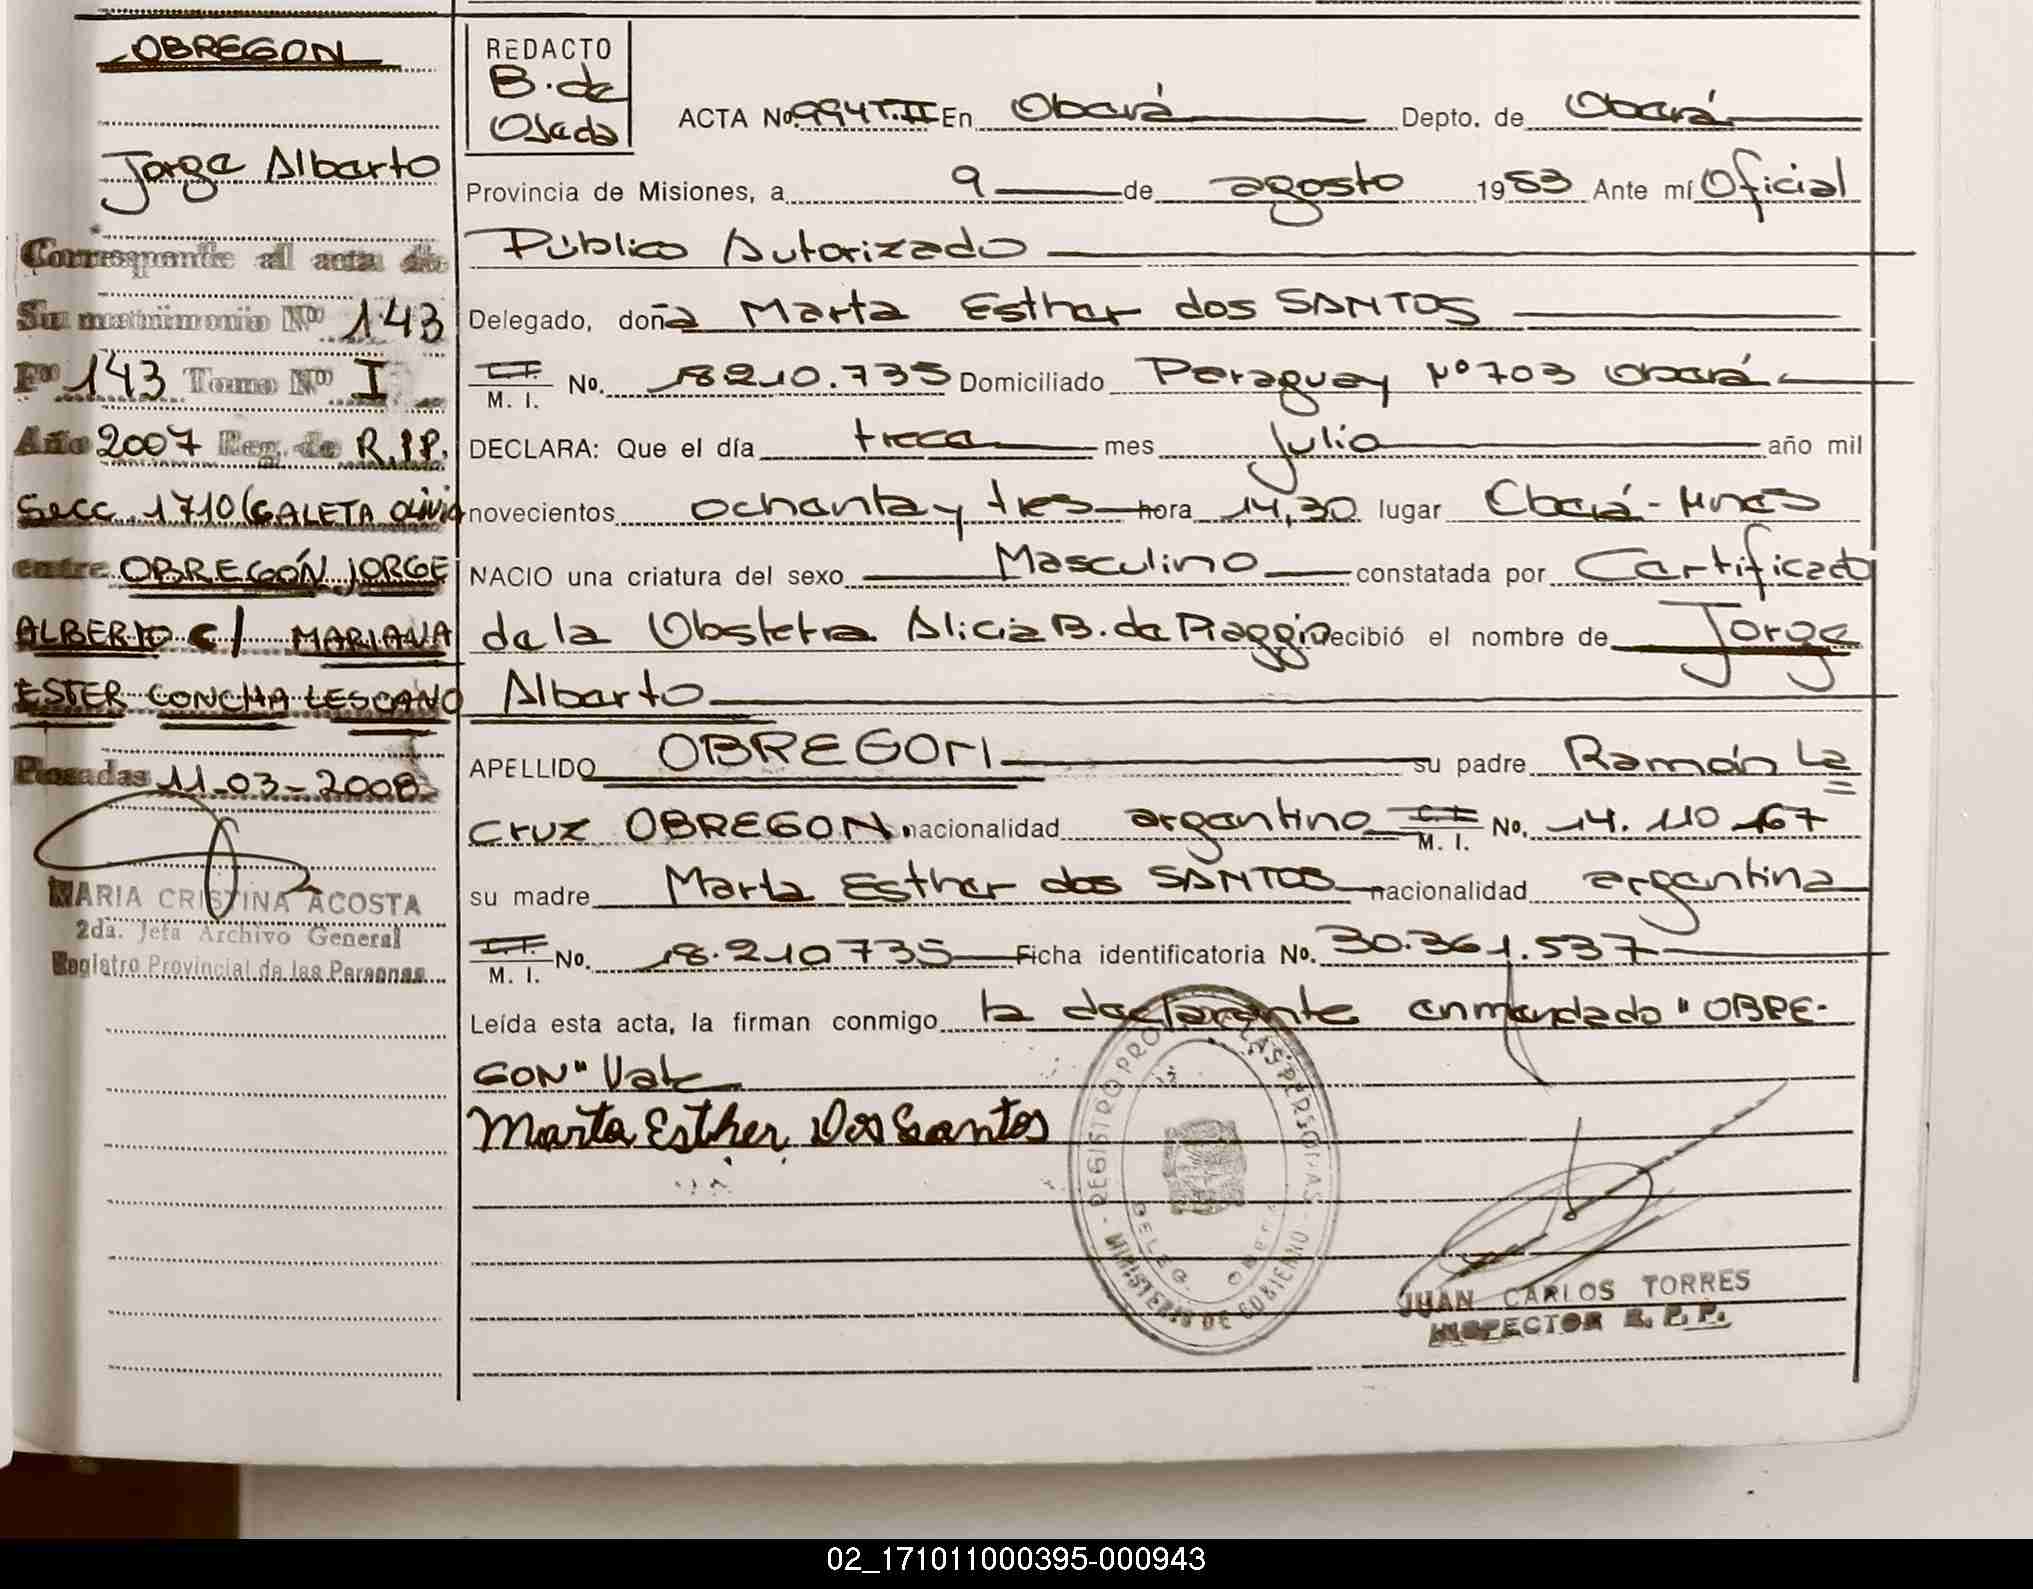 OBREGON
Jorge Alberto
Corresponde al acta de
Su matrimonio Nº 143
Fº 143 Tomo Nº I
Año 2007 Reg. de R.P.P.
Secc. 1710 (CALETA OLIVIA
entre OBREGÓN JORGE
ALBERTO C/ MARIANA
ESTER CONCHA LESCANO
Posadas 11-03-2008
MARIA CRISTINA ACOSTA
2da. Jefa Archivo General
Registro Provincial de las Personas
REDACTO
B. de
Ojeda
ACTA No. 994 T. II En Oberá Depto. de Oberá
Provincia de Misiones, a 9 de agosto 1983 Ante mí Oficial
Público Autorizado
Delegado, doña Marta Esther dos SANTOS
M. I. No. 18210.735 Domiciliado Paraguay Nº 703 Oberá
DECLARA: Que el día trece mes Julio año mil
novecientos ochenta y tres hora 14,30 lugar Oberá - Mnes
NACIO una criatura del sexo Masculino constatada por Certificado
de la Obstetra Alicia B. de Piaggio recibió el nombre de Jorge
Alberto
APELLIDO OBREGON su padre Ramón La
Cruz OBREGON. nacionalidad argentino C.I. M. I. No. 14.110.167
su madre Marta Esther dos SANTOS nacionalidad argentina
M. I. No. 18.210735 Ficha identificatoria No. 30.361.537
Leída esta acta, la firman conmigo la declarante enmendado "OBRE-
GON" Vale
Marta Esther Dos Santos
REGISTRO PROV. LAS PERSONAS
DELEG. OBERA
MINISTERIO DE GOBIERNO
JUAN CARLOS TORRES
INSPECTOR R. P. P.
02_171011000395-000943